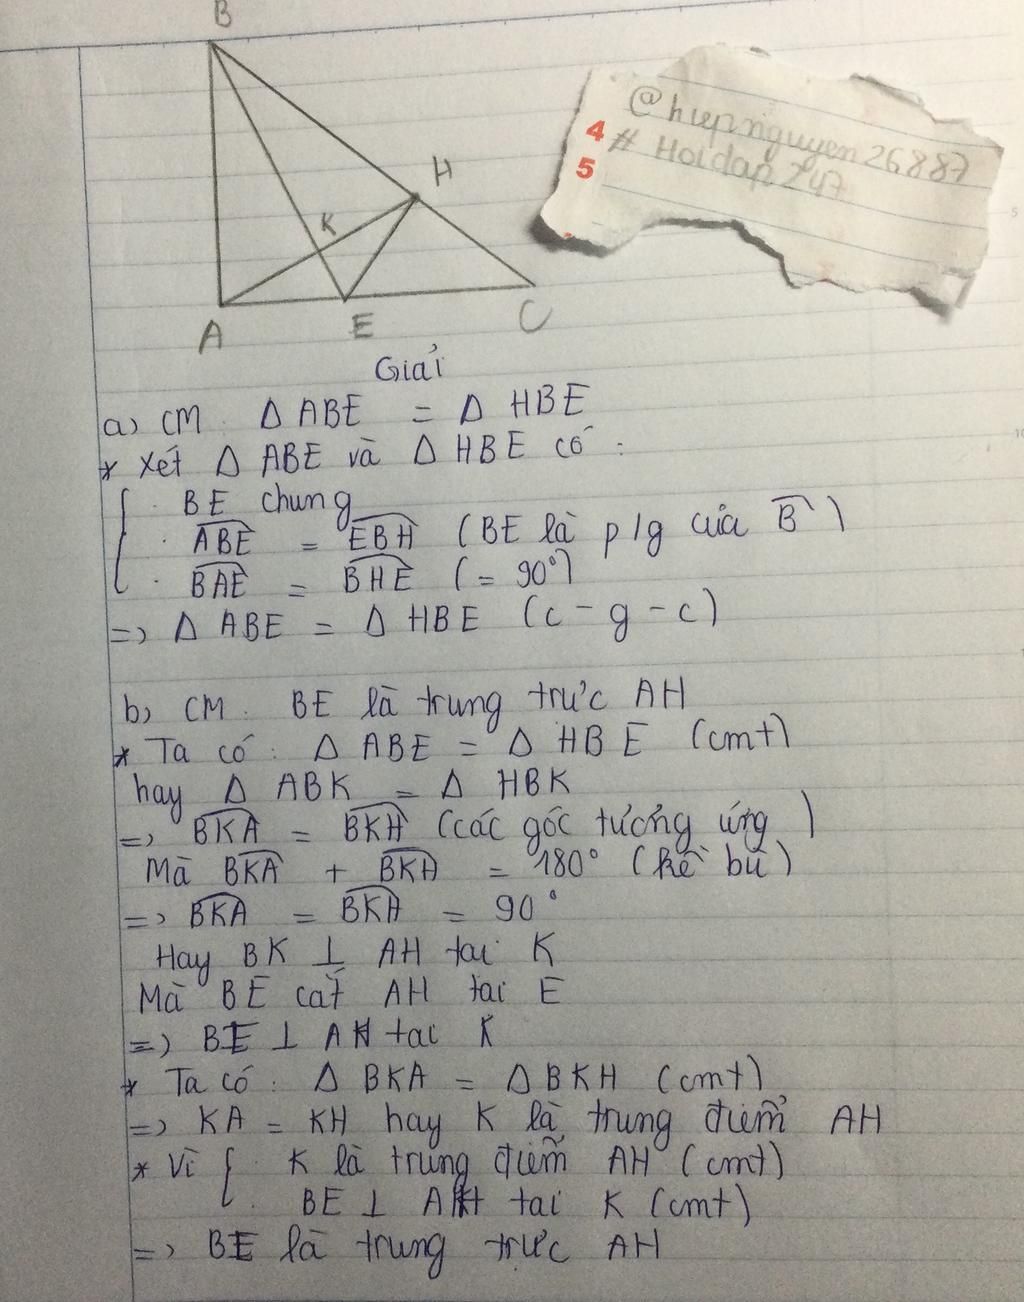 B
H
K
A
E
C
@hiepnguyen26887
4 # Hoidap247
5
Giải
a) CM: Δ ABE = Δ HBE
* Xét Δ ABE và Δ HBE có:
{ · BE chung
· ABE = EBH (BE là p/g của B)
· BAE = BHE (= 90°)
=> Δ ABE = Δ HBE (c - g - c)
b) CM: BE là trung trực AH
* Ta có: Δ ABE = Δ HBE (cmt)
hay Δ ABK = Δ HBK
=> BKA = BKH (các góc tương ứng)
Mà BKA + BKH = 180° (kề bù)
=> BKA = BKH = 90°
Hay BK ⊥ AH tại K
Mà BE cắt AH tại E
=> BE ⊥ AH tại K
* Ta có: Δ BKA = Δ BKH (cmt)
=> KA = KH hay K là trung điểm AH
* Vì { · K là trung điểm AH (cmt)
BE ⊥ AH tại K (cmt)
=> BE là trung trực AH